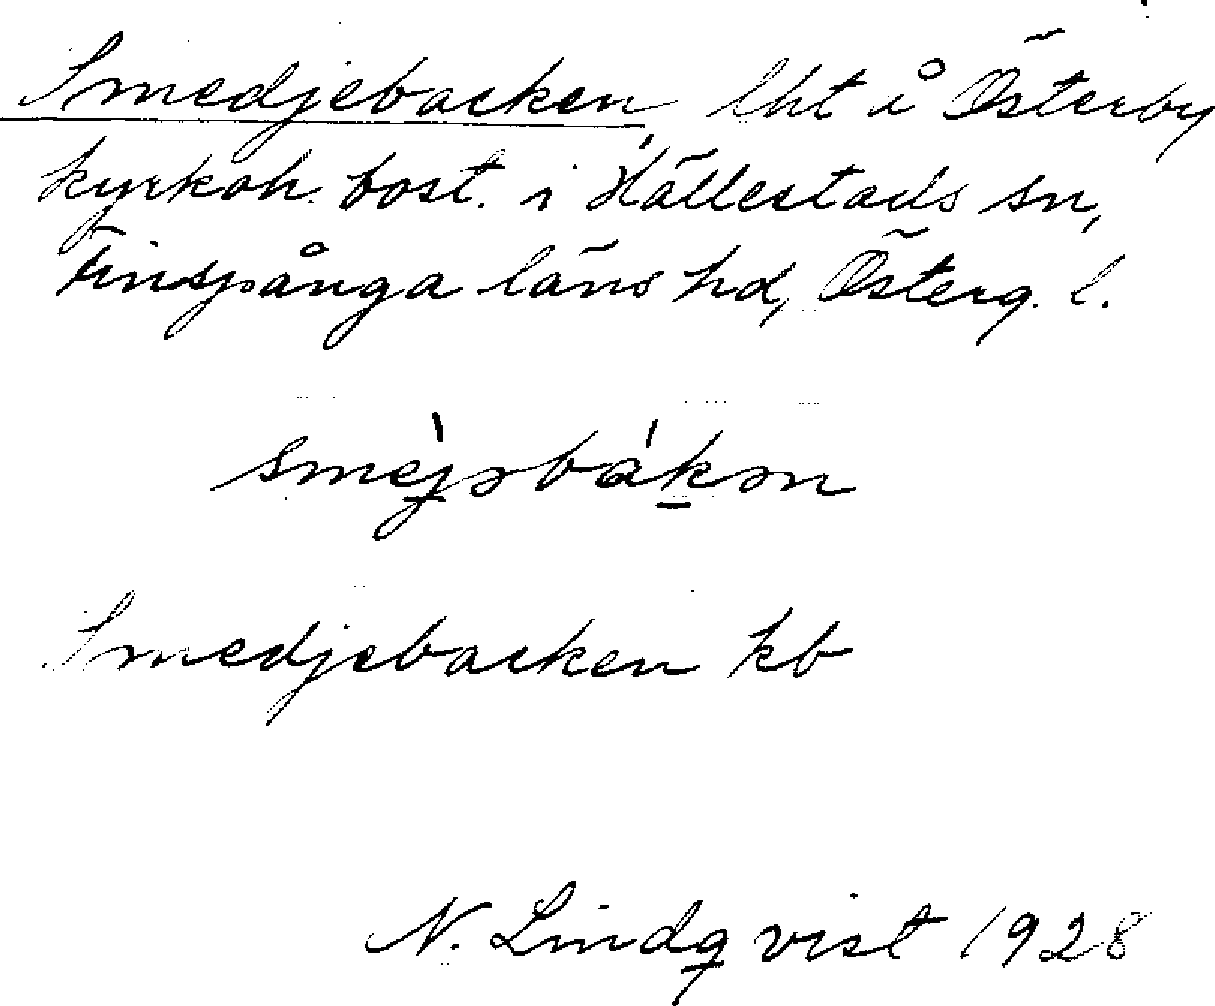 Smedjebacken, lht å Österby
kyrkoh. bost. i Hällestads sn,
Finspånga läns hd, Österg. l.
smèjəbákən
Smedjebacken kb
N. Lindqvist 1928